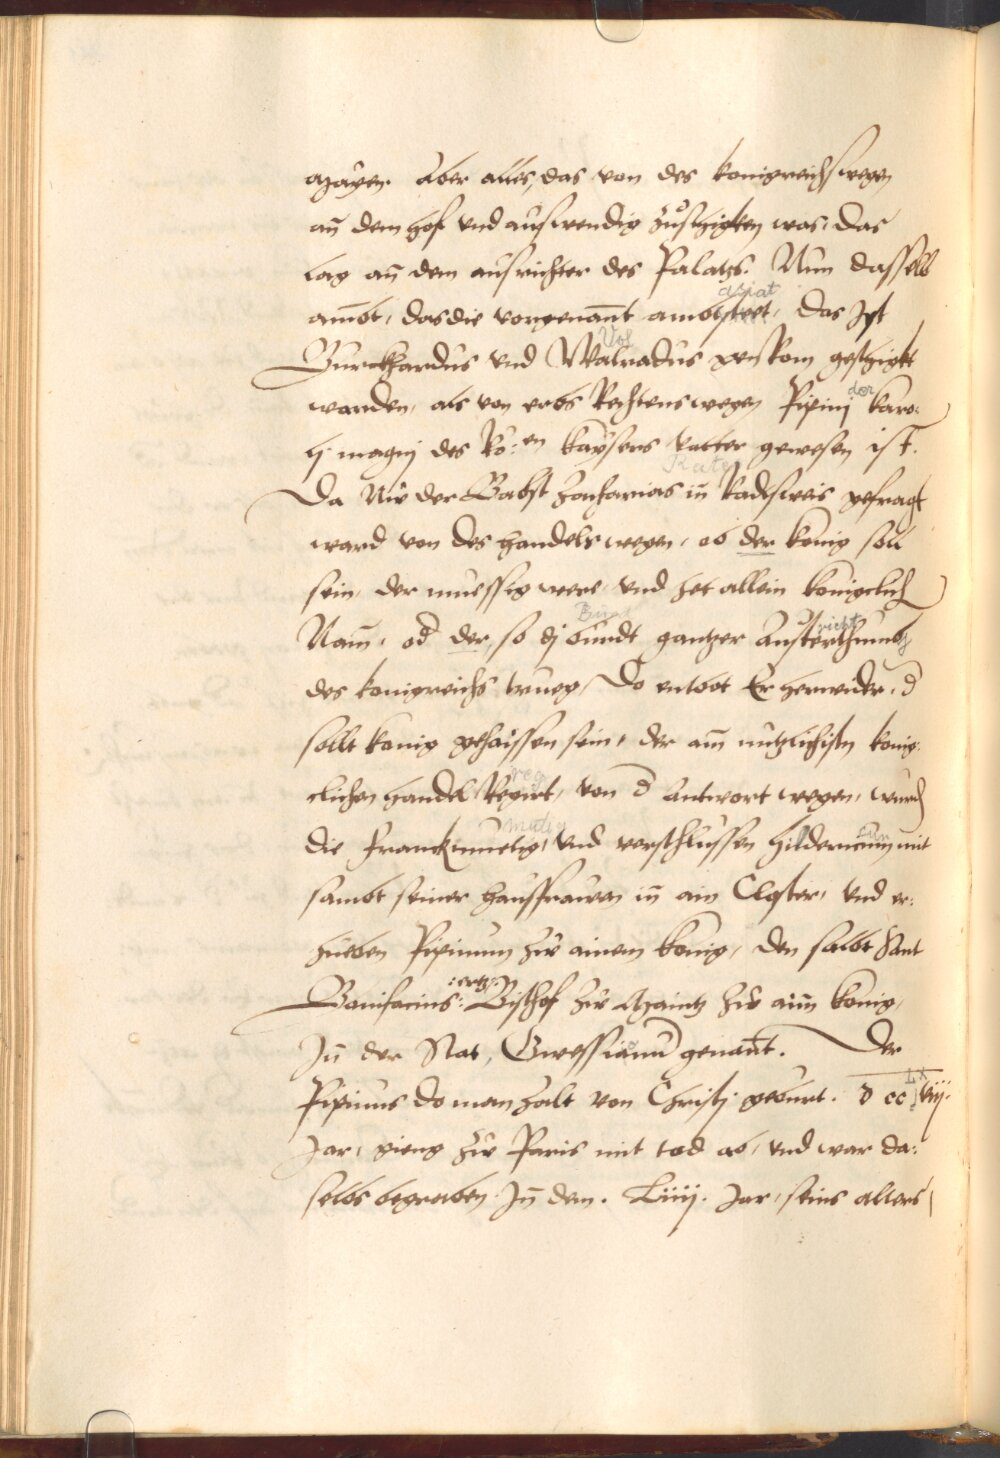 mayen. Aber alles, das von des konigreichs wegen
an̄ dem hof vnd auswendig zuschigken was, das
lag an̄ dem ausrichter des Palatzs. Nun dasselb
am̄bt, das die vorgenan̄t ambtstret, das Ist
Burckhardus vnd Walradus gen Rom geschigkt
warden, als von erbs Rechtens wegen Pipinj der karo-
lj magnj des Ro:en kaysers vatter gewesen ist.
Da Nu̇ der Babst Zacharias in̄ Radtsweis gefragt
ward von des handels wegen, ob der konig soll
sein, der muessig were, vnd het allein koniglich
Nam̄, od der, so dj bundt gantzer Austerthumb
des konigreichs trueg, Do entbot Er herwider, d
sollt konig gehaissen sein, der am̄ nutzlichistn konig-
clichen handel Regirt, von d Antwort wegen, wurdn
die franckh muetig, vnd verschlussen Hildericum mit
sambt seiner hausfrawen in̄ ain Closter, vnd er-
hueben Pipinum zu̇ ainem konig, den salbt Sant
Bonifacius :ertz: Bischof zu̇ Maintz zu̇ aim̄ konig,
In̄ der Stat, Swessianu genan̄t. Der
Pipinus do man zalt von Christj geburt. d cc lxviij.
Jar, gieng zu̇ Paris mit tod ab, vnd war da-
selbs begraben In̄ dem. Liiij. Jar, seins alters,